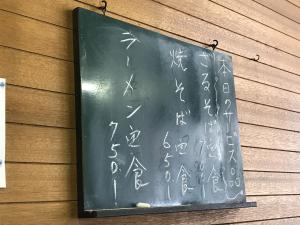 本日のサービス品
ざるそば定食
焼そば定食 650.-
ラーメン定食 750.-